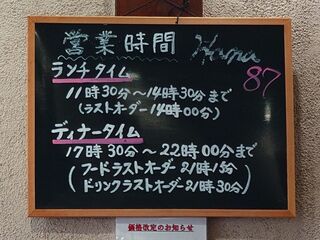 営業時間 Hana
87
ランチタイム
11時30分〜14時30分まで
(ラストオーダー14時00分)
ディナータイム
17時30分〜22時00分まで
(フードラストオーダー21時15分
ドリンクラストオーダー21時30分)
価格改定のお知らせ